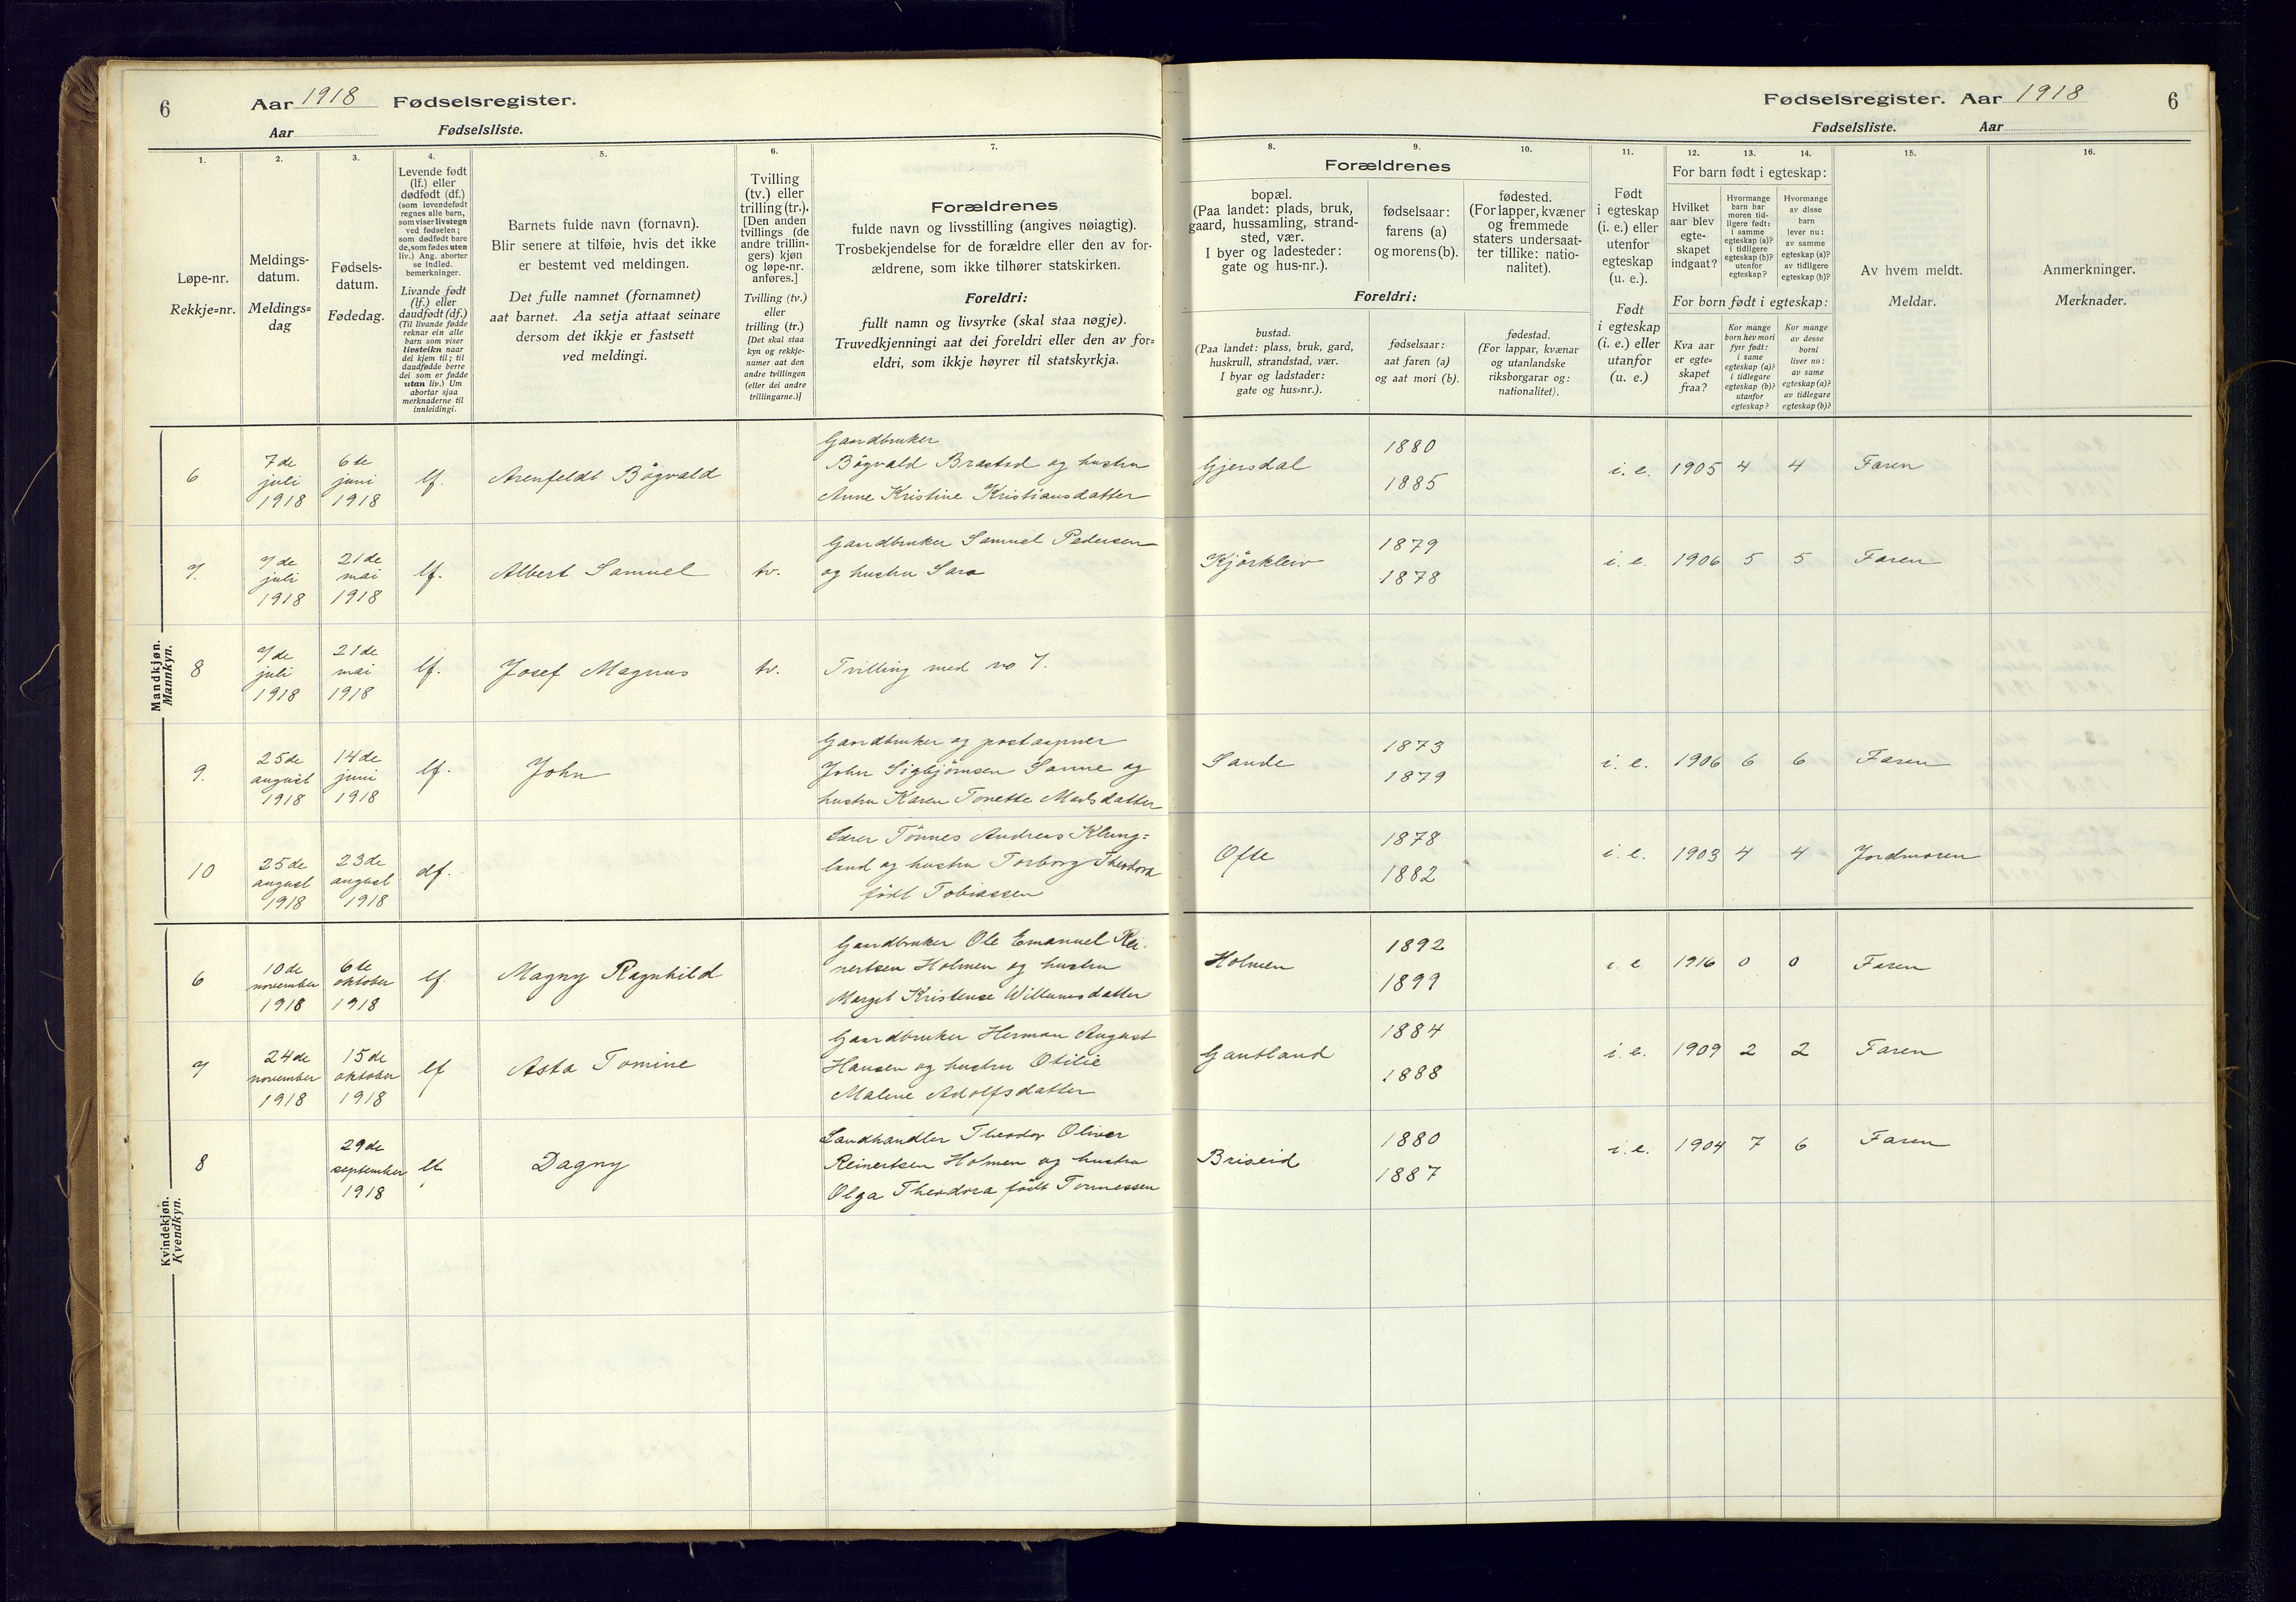 6 Aar 1918 Fødselsregister.
Aar Fødselsliste.
Fødselsregister. Aar 1918 6
Fødselsliste. Aar
1. 2. 3. 4. 5. 6. 7.
Løpe-nr.
Rekkje=nr.
Meldings-
datum.
Meldings=
dag
Fødsels-
datum.
Fødedag.
Levende født
(lf.) eller
dødfødt (df.)
(som levendefødt
regnes alle barn,
som viser livstegn
ved fødselen;
som dødfødt bare
de, som fødes uten
liv.) Ang. aborter
se indled.
bemerkninger.
Livande født
(lf.) eller
daudfødt (df.)
(Til livande fødde
reknar ein alle
barn som viser
livsteikn naar
dei kjem til; til
daudfødde berre
dei som er fødde
utan liv.) Um
abortar sjaa
merknaderne til
innleidingi.
Barnets fulde navn (fornavn).
Blir senere at tilføie, hvis det ikke
er bestemt ved meldingen.
Det fulle namnet (fornamnet)
aat barnet. Aa setja attaat seinare
dersom det ikkje er fastsett
ved meldingi.
Tvilling
(tv.) eller
trilling (tr.).
[Den anden
tvillings (de
andre trillin-
gers) kjøn
og løpe-nr.
anføres.]
Tvilling (tv.)
eller
trilling (tr.)
[Det skal staa
kyn og rekkje-
numer aat den
andre tvillingen
(eller dei andre
trillingarne.)]
Forældrenes
fulde navn og livsstilling (angives nøiagtig).
Trosbekjendelse for de forældre eller den av for-
ældrene, som ikke tilhører statskirken.
Foreldri:
fullt namn og livsyrke (skal staa nøgje).
Truvedkjenningi aat dei foreldri eller den av for=
eldri, som ikkje høyrer til statskyrkja.
8. 9. 10. 11. 12. 13. 14. 15. 16.
Forældrenes
bopæl.
(Paa landet: plads, bruk,
gaard, hussamling, strand-
sted, vær.
I byer og ladesteder:
gate og hus-nr.).
fødselsaar:
farens (a)
og morens (b).
fødested.
(For lapper, kvæner
og fremmede
staters undersaat-
ter tillike: natio-
nalitet).
Foreldri:
bustad.
(Paa landet: plass, bruk, gard,
huskrull, strandstad, vær.
I byar og ladstader:
gate og hus=nr.).
fødselsaar:
aat faren (a)
og aat mori (b).
fødestad.
(For lappar, kvænar
og utanlandske
riksborgarar og:
nationalitet).
Født
i egteskap
(i. e.) eller
utenfor
egteskap
(u. e.).
Født
i egteskap
(i. e.) eller
utanfor
(u. e.)
For barn født i egteskap:
Hvilket
aar blev
egte-
skapet
indgaat?
Hvormange
barn har
moren tid-
ligere født:
i samme
egteskap (a)?
i tidligere
egteskap (b)?
utenfor
egteskap?
Hvormange
av disse
barn
lever nu:
av samme
egteskap (a)?
av tidligere
egteskap (b)?
For born født i egteskap:
Kva aar
er egte=
skapet
fraa?
Kor mange
born hev mori
fyrr født:
i same
egteskap (a)?
i tidlegare
egteskap (b)?
utanfor
egteskap?
Kor mange
av desse
borni
liver no:
av same
egteskap (a)?
av tidlegare
egteskap (b)?
Av hvem meldt.
Meldar.
Anmerkninger.
Merknader.
Mandkjøn.
Mannkyn.
6 7de juli 1918 6te juni 1918 lf. Arenfeldt Bågvald
Gaardbruker
Bågvald Brastad og hustru
Anne Kristine Kristiansdatter
Gjersdal 1880 1885 i. e. 1905 4 4 Faren
7. 7de juli 1918 21de mai 1918 lf. Albert Samuel tv.
Gaardbruker Samuel Pedersen
og hustru Sara
Kjørkleiv 1879 1878 i. e. 1906 5 5 Faren
8 7de juli 1918 21de mai 1918 lf. Josef Magnus tv. Tvilling med no 7.
9. 25de august 1918 14de juni 1918 lf. John
Gaardbruker og postaapner
John Sigbjørnsen Sanne og
hustru Karen Tonette Madsdatter
Sande 1873 1879 i. e. 1906 6 6 Faren
10 25de august 1918 23de august 1918 df.
Lærer Tønnes Andreas Klung=
land og hustru Torborg Theodora
født Tobiassen
Ofte 1878 1882 i. e. 1903 4 4 Jordmoren
Kvindekjøn.
Kvendkyn.
6 10de november 1918 6te oktober 1918 lf Magny Ragnhild
Gaardbruker Ole Emanuel Rei-
nertsen Holmen og hustru
Margit Kristense Willumsdatter
Holmen 1892 1899 i. e 1916 0 0 Faren
7 24de november 1918 15de oktober 1918 lf Asta Tomine
Gaardbruker Herman August
Hansen og hustru Otilie
Malene Adolfsdatter
Gautland 1884 1888 i. e. 1909 2 2 Faren
8 29de september 1918 lf. Dagny
Landhandler Theodor Oliver
Reinertsen Holmen og hustru
Olga Theodora født Tønnessen
Briseid 1880 1887 i. e. 1904 7 6 Faren